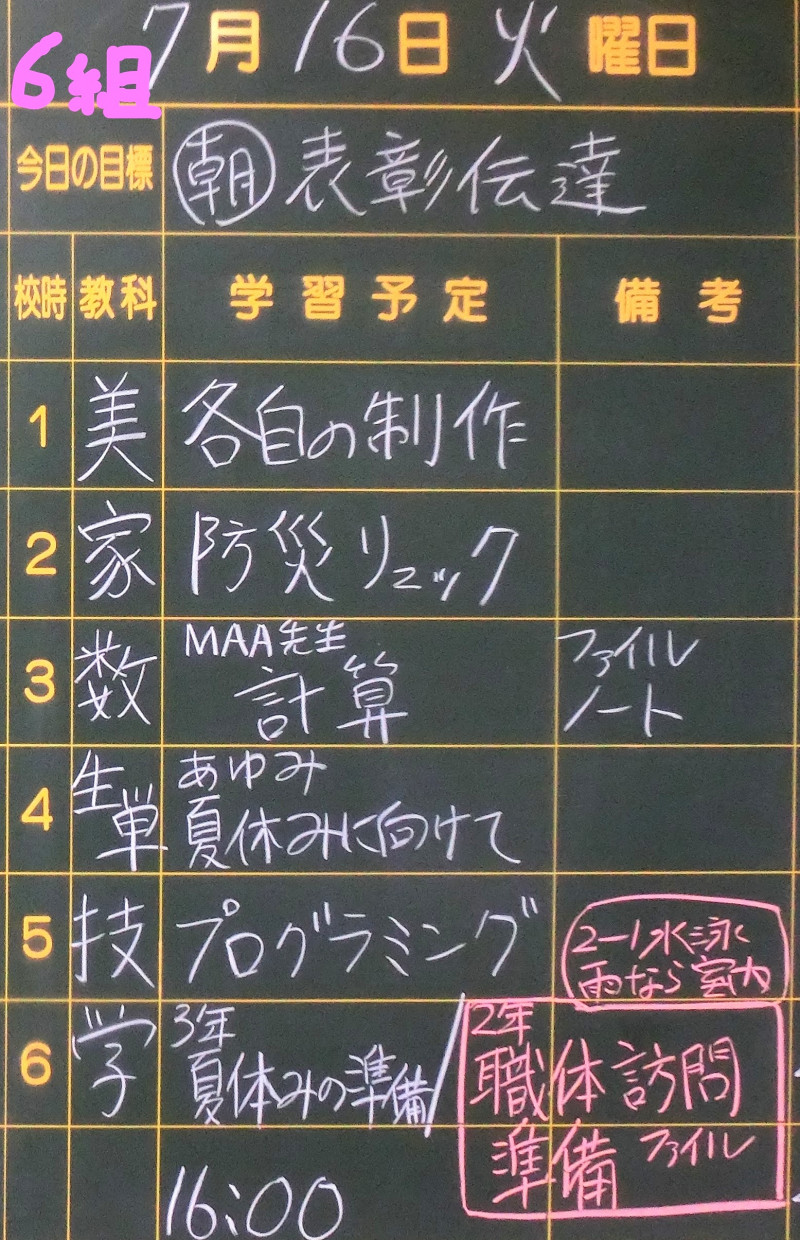 7月16日火曜日
6組
今日の目標 朝 表彰伝達
校時 教科 学習予定 備考
1 美 各自の制作
2 家 防災リュック
3 数 MAA先生 ファイル
計算 ノート
4 生単 あゆみ
夏休みに向けて
5 技 プログラミング 2-1水泳
雨なら室内
6 学 3年 2年
夏休みの準備 職体訪問
準備 ファイル
16:00